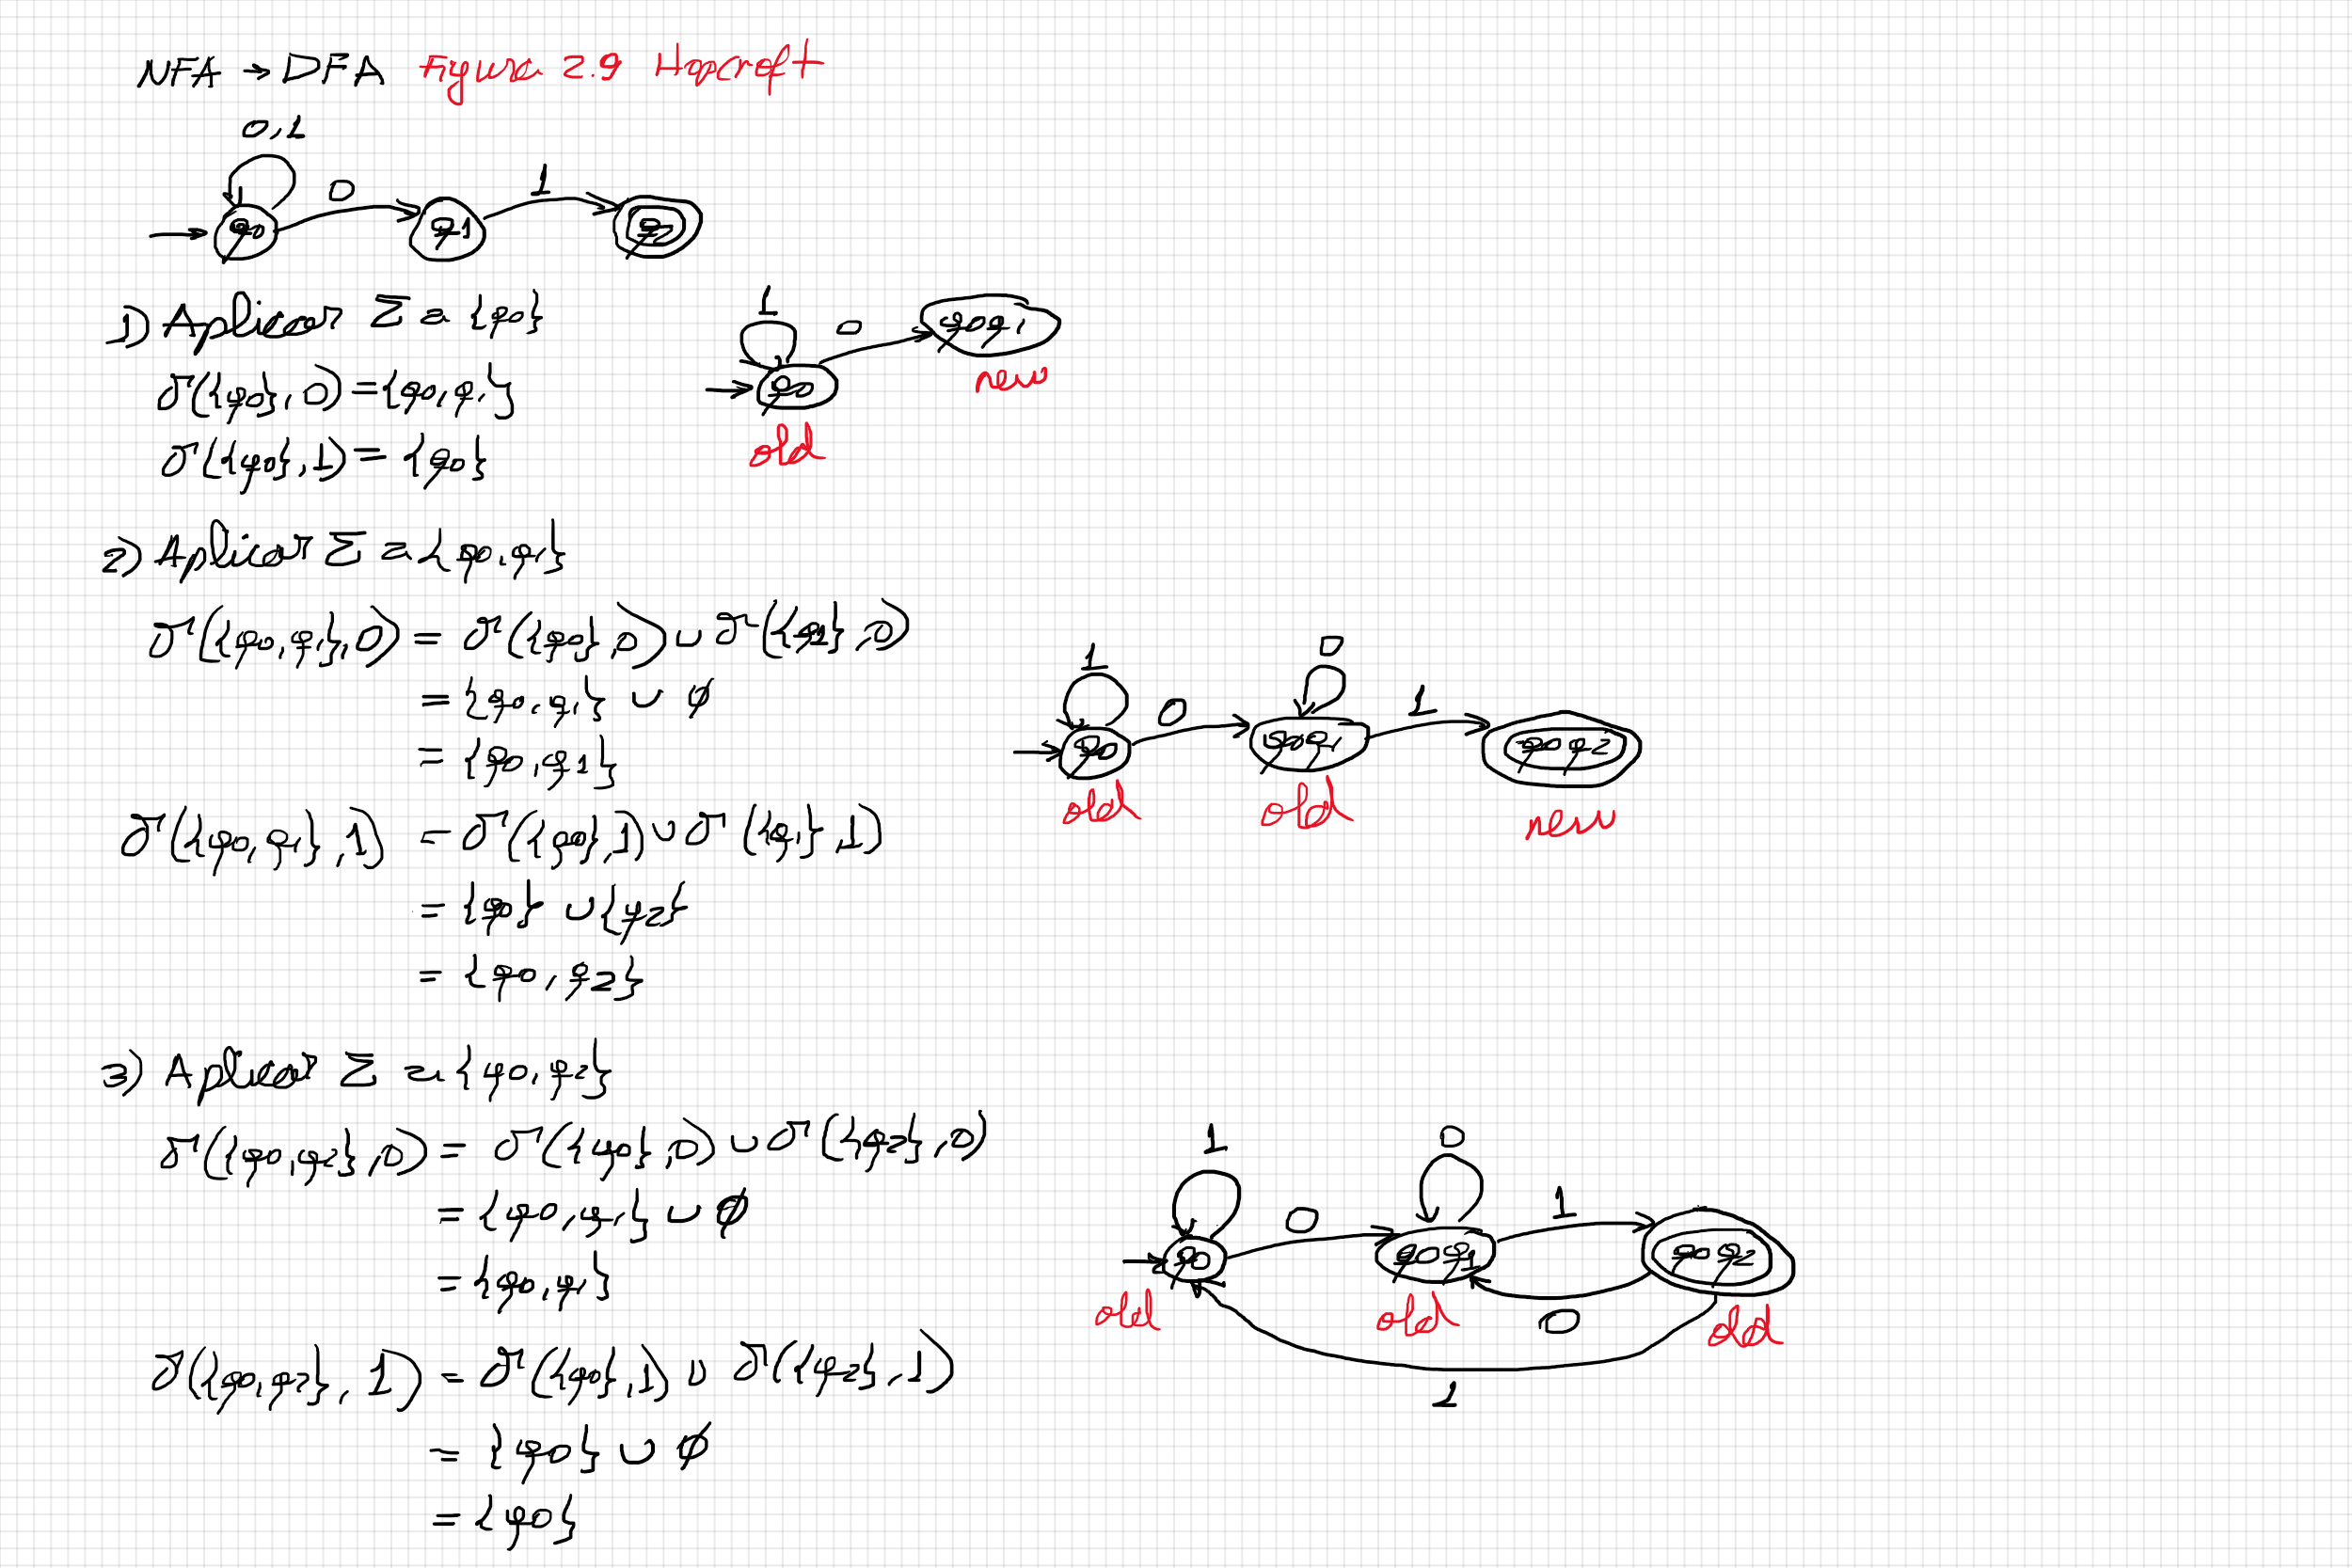 NFA → DFA Figura 2.9 Hopcroft
0,1
0
1
q0
q1
q2
1) Aplicar Σ a {q0}
δ({q0}, 0) = {q0, q1}
δ({q0}, 1) = {q0}
1
0
q0q1
new
q0
old
2) Aplicar Σ a {q0, q1}
δ({q0, q1}, 0) = δ({q0}, 0) ∪ δ({q1}, 0)
= {q0, q1} ∪ ∅
= {q0, q1}
δ({q0, q1}, 1) = δ({q0}, 1) ∪ δ({q1}, 1)
= {q0} ∪ {q2}
= {q0, q2}
1
0
0
1
q0
q0q1
q0q2
old
old
new
3) Aplicar Σ a {q0, q2}
δ({q0, q2}, 0) = δ({q0}, 0) ∪ δ({q2}, 0)
= {q0, q1} ∪ ∅
= {q0, q1}
δ({q0, q2}, 1) = δ({q0}, 1) ∪ δ({q2}, 1)
= {q0} ∪ ∅
= {q0}
1
0
0
1
q0
q0q1
q0q2
old
old
0
old
1